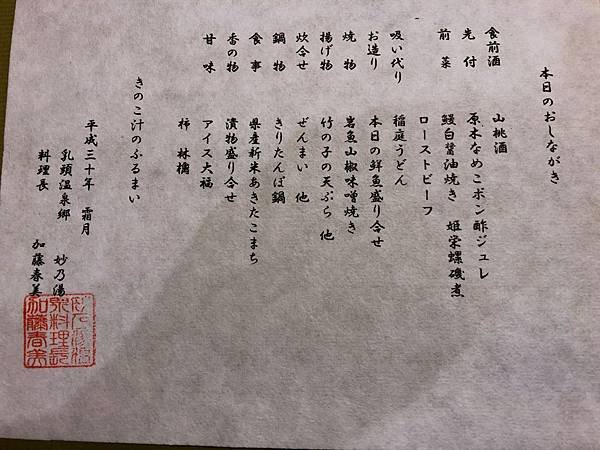 本日のおしながき
食前酒 山桃酒
先付 原木なめこポン酢ジュレ
前菜 鰻白醤油焼き 姫栄螺磯煮
ローストビーフ
吸い代り 稲庭うどん
お造り 本日の鮮魚盛り合せ
焼物 岩魚山椒味噌焼き
揚げ物 竹の子の天ぷら 他
炊合せ ぜんまい 他
鍋物 きりたんぽ鍋
食事 県産新米あきたこまち
香の物 漬物盛り合せ
甘味 アイス大福
柿 林檎
きのこ汁のふるまい
平成三十年 霜月
乳頭温泉郷 妙乃湯
料理長 加藤春美
料理長
加藤春美